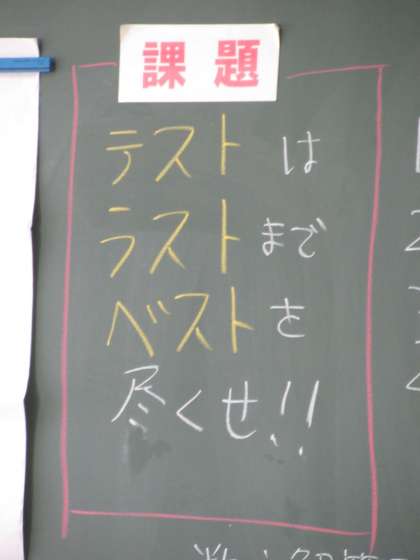 課題
テストは
ラストまで
ベストを
尽くせ!!